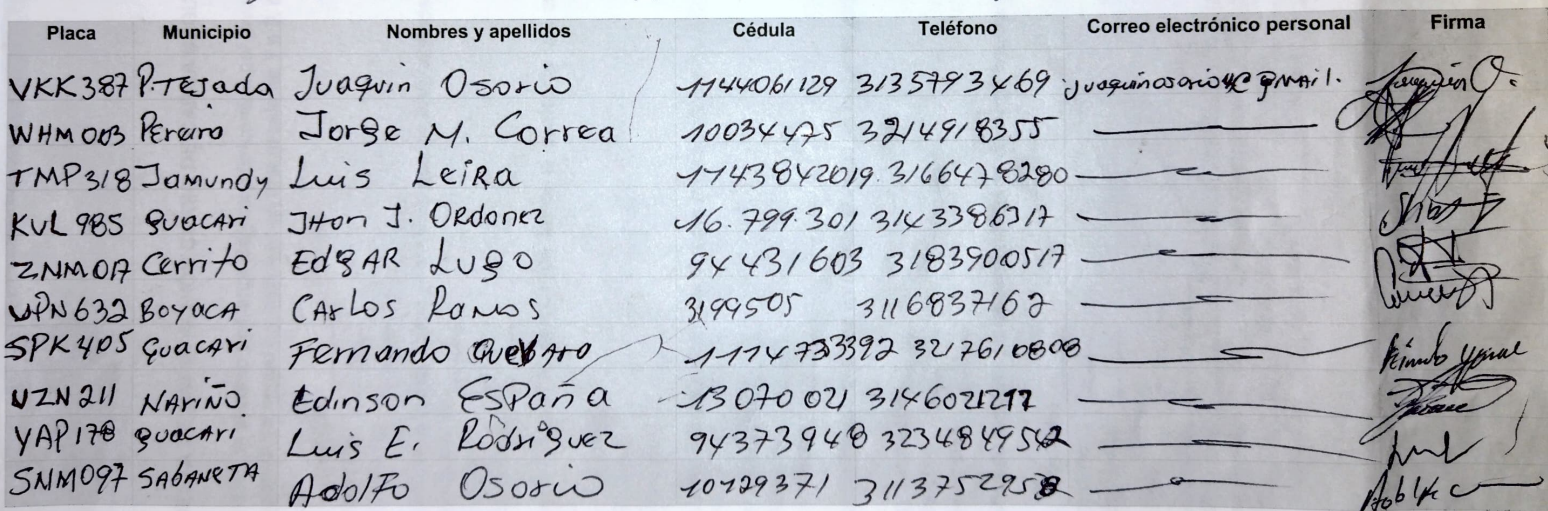 Placa Municipio Nombres y apellidos Cédula Teléfono Correo electrónico personal Firma
VKK387 P.TEJada Juaquin Osorio 1144061129 3135793469 Juaquin
WHM003 Jorge M. Correa 10034475 3214918355
TMP318 Jamundy Luis LeiRa 1143842019. 3166478280
KVL 985 guacari JHon J. ORdonez 16.799.301 3143386317
ZNM017 Cerrito EdgAR Lugo 94431603 3183900517
VPN632 BoyacA CArLos Ramos 3199505 3116837162
SPK405 guacAri Fernando 1114733392 3217610808
VZN211 NAriÑo Edinson ESPaña 13070021
YAP178 guacAri Luis E. Rodriguez 94373948
SNM097 SAbANeTA AdolFo Osorio 10129371